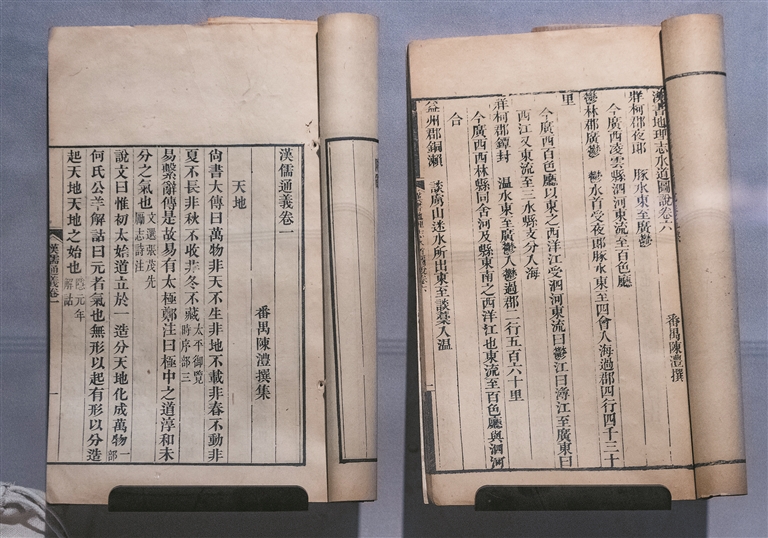 漢儒通義卷一
番禺陳澧撰集
天地
尙書大傳曰萬物非天不生非地不載非春不動非
夏不長非秋不收非冬不藏太平御覽時序部三
易繫辭傳是故易有太極鄭注曰極中之道淳和未
分之氣也文選張茂先勵志詩注
說文曰惟初太始道立於一造分天地化成萬物一部
何氏公羊解詁曰元者氣也無形以起有形以分造
起天地天地之始也隱元年解詁
漢儒通義卷一
一
漢書地理志水道圖說卷六
番禺陳澧撰
牂柯郡夜郎 豚水東至廣鬱
今廣西凌雲縣泗河東流至百色廳
鬱林郡廣鬱 鬱水首受夜郎豚水東至四會入海過郡四行四千三十
里
今廣西百色廳以東之西洋江受泗河東流曰鬱江曰潯江至廣東曰
西江又東流至三水縣支分入海
牂柯郡鐔封 溫水東至廣鬱入鬱過郡二行五百六十里
今廣西西林縣同舍河及縣東南之西洋江也東流至百色廳與泗河
合
益州郡銅瀨 談虜山迷水所出東至談稾入溫